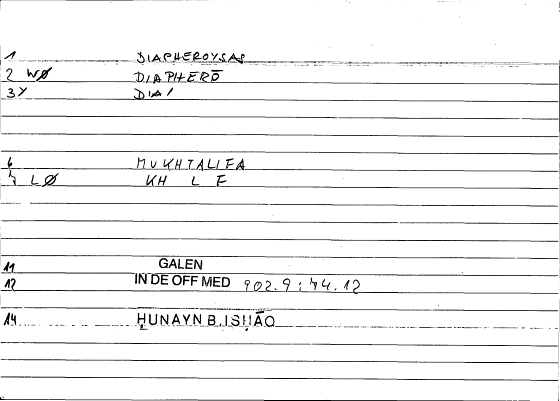 1 DIAPHEROYSAS
2 WØ DIAPHERŌ
3Y DIA/
6 MUKHTALIFA
7 LØ KH L F
11 GALEN
12 IN DE OFF MED 902.9 : 74.12
14 ḤUNAYN B.ISḤĀQ